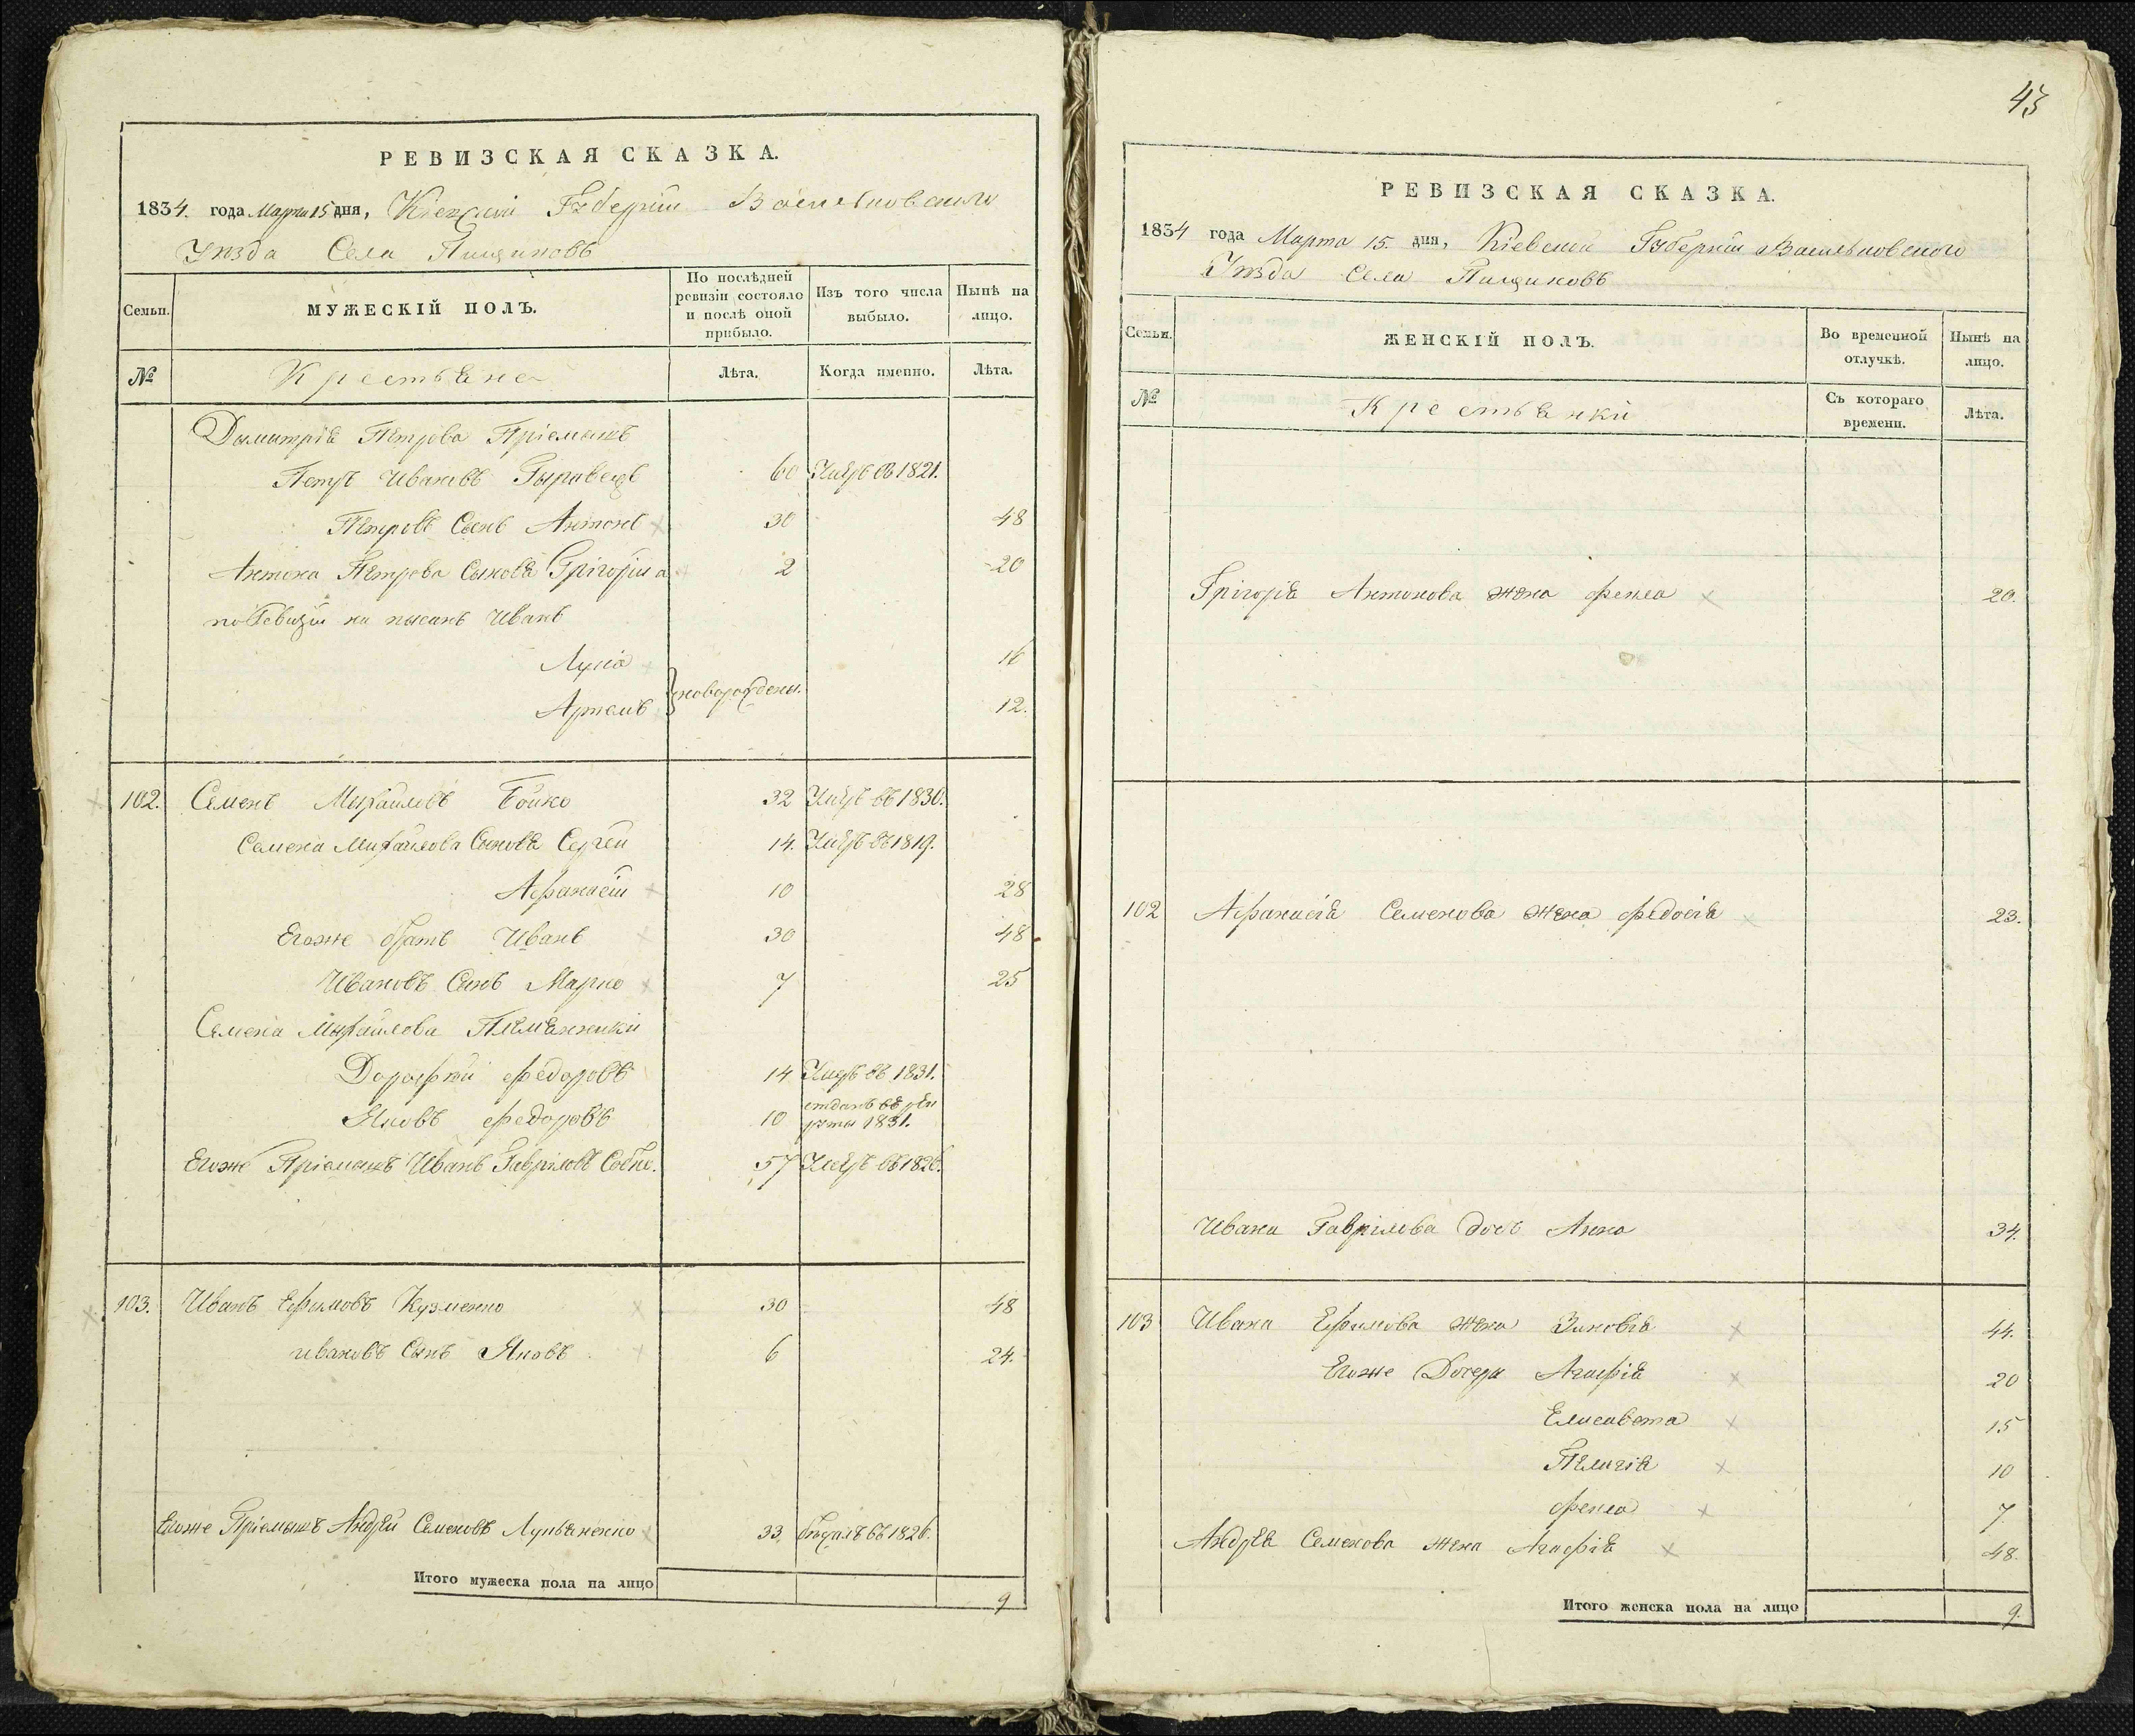 РЕВИЗСКАЯ СКАЗКА.
1834. года Марта 15 дня, Кіевской Губерніи Васильковского
Уѣзда Села Пищиковъ
Семьи.
МУЖЕСКІЙ ПОЛЪ.
По послѣдней ревизіи состояло и послѣ оной прибыло.
Изъ того числа выбыло.
Нынѣ на лицо.
№
Крестьяне
Лѣта.
Когда именно.
Лѣта.
Дымитрія Петрова Пріемышъ
Петръ Ивановъ 60 въ 1821.
Петровъ Сынъ Антонъ 30 48
Антона Петрова Сыновя Григорій а 2 20
по Ревизіи на писанъ Иванъ
Лука 16
Артемъ новорождены. 12.
102. Семенъ Михайловъ Бойко 32 Умеръ въ 1830.
Семена Михайлова Сыновя Сергей 14. Умеръ въ 1819.
Афанасій 10 28
Егоже братъ Иванъ 30 48
Ивановъ Сынъ Марко 7 25
Семена Михайлова Племянники
Дорофей Федоровъ 14 Умеръ въ 1831.
Яковъ Федоровъ 10 отданъ въ рекруты 1831.
Егоже Пріемышъ Иванъ Гавриловъ 57 Умеръ въ 1826.
103. Иванъ Ефимовъ Кузменко 30 48
ивановъ Сынъ Яковъ 6 24.
Егоже Пріемышъ Андрей Семеновъ Лукьяненко 33. бѣжалъ въ 1826.
Итого мужеска пола на лицо 9
43
РЕВИЗСКАЯ СКАЗКА.
1834 года Марта 15. дня, Кіевской Губерніи Васильковского
Уѣзда Села Пищиковъ
Семьи.
ЖЕНСКІЙ ПОЛЪ.
Во временной отлучкѣ.
Нынѣ на лицо.
№
Крестьянки
Съ котораго времени.
Лѣта.
Григорія Антонова жена Фекла 20.
102 Афанасія Семенова жена Федосія 23.
Ивана Гаврилова Анна 34.
103 Ивана Ефимова жена Зиновія 44.
Егоже Дочери Агафія 20
Елисавета 15
Пелагія 10
Фекла 7
Андрея Семенова жена Агафія 48.
Итого женска пола на лицо 9.